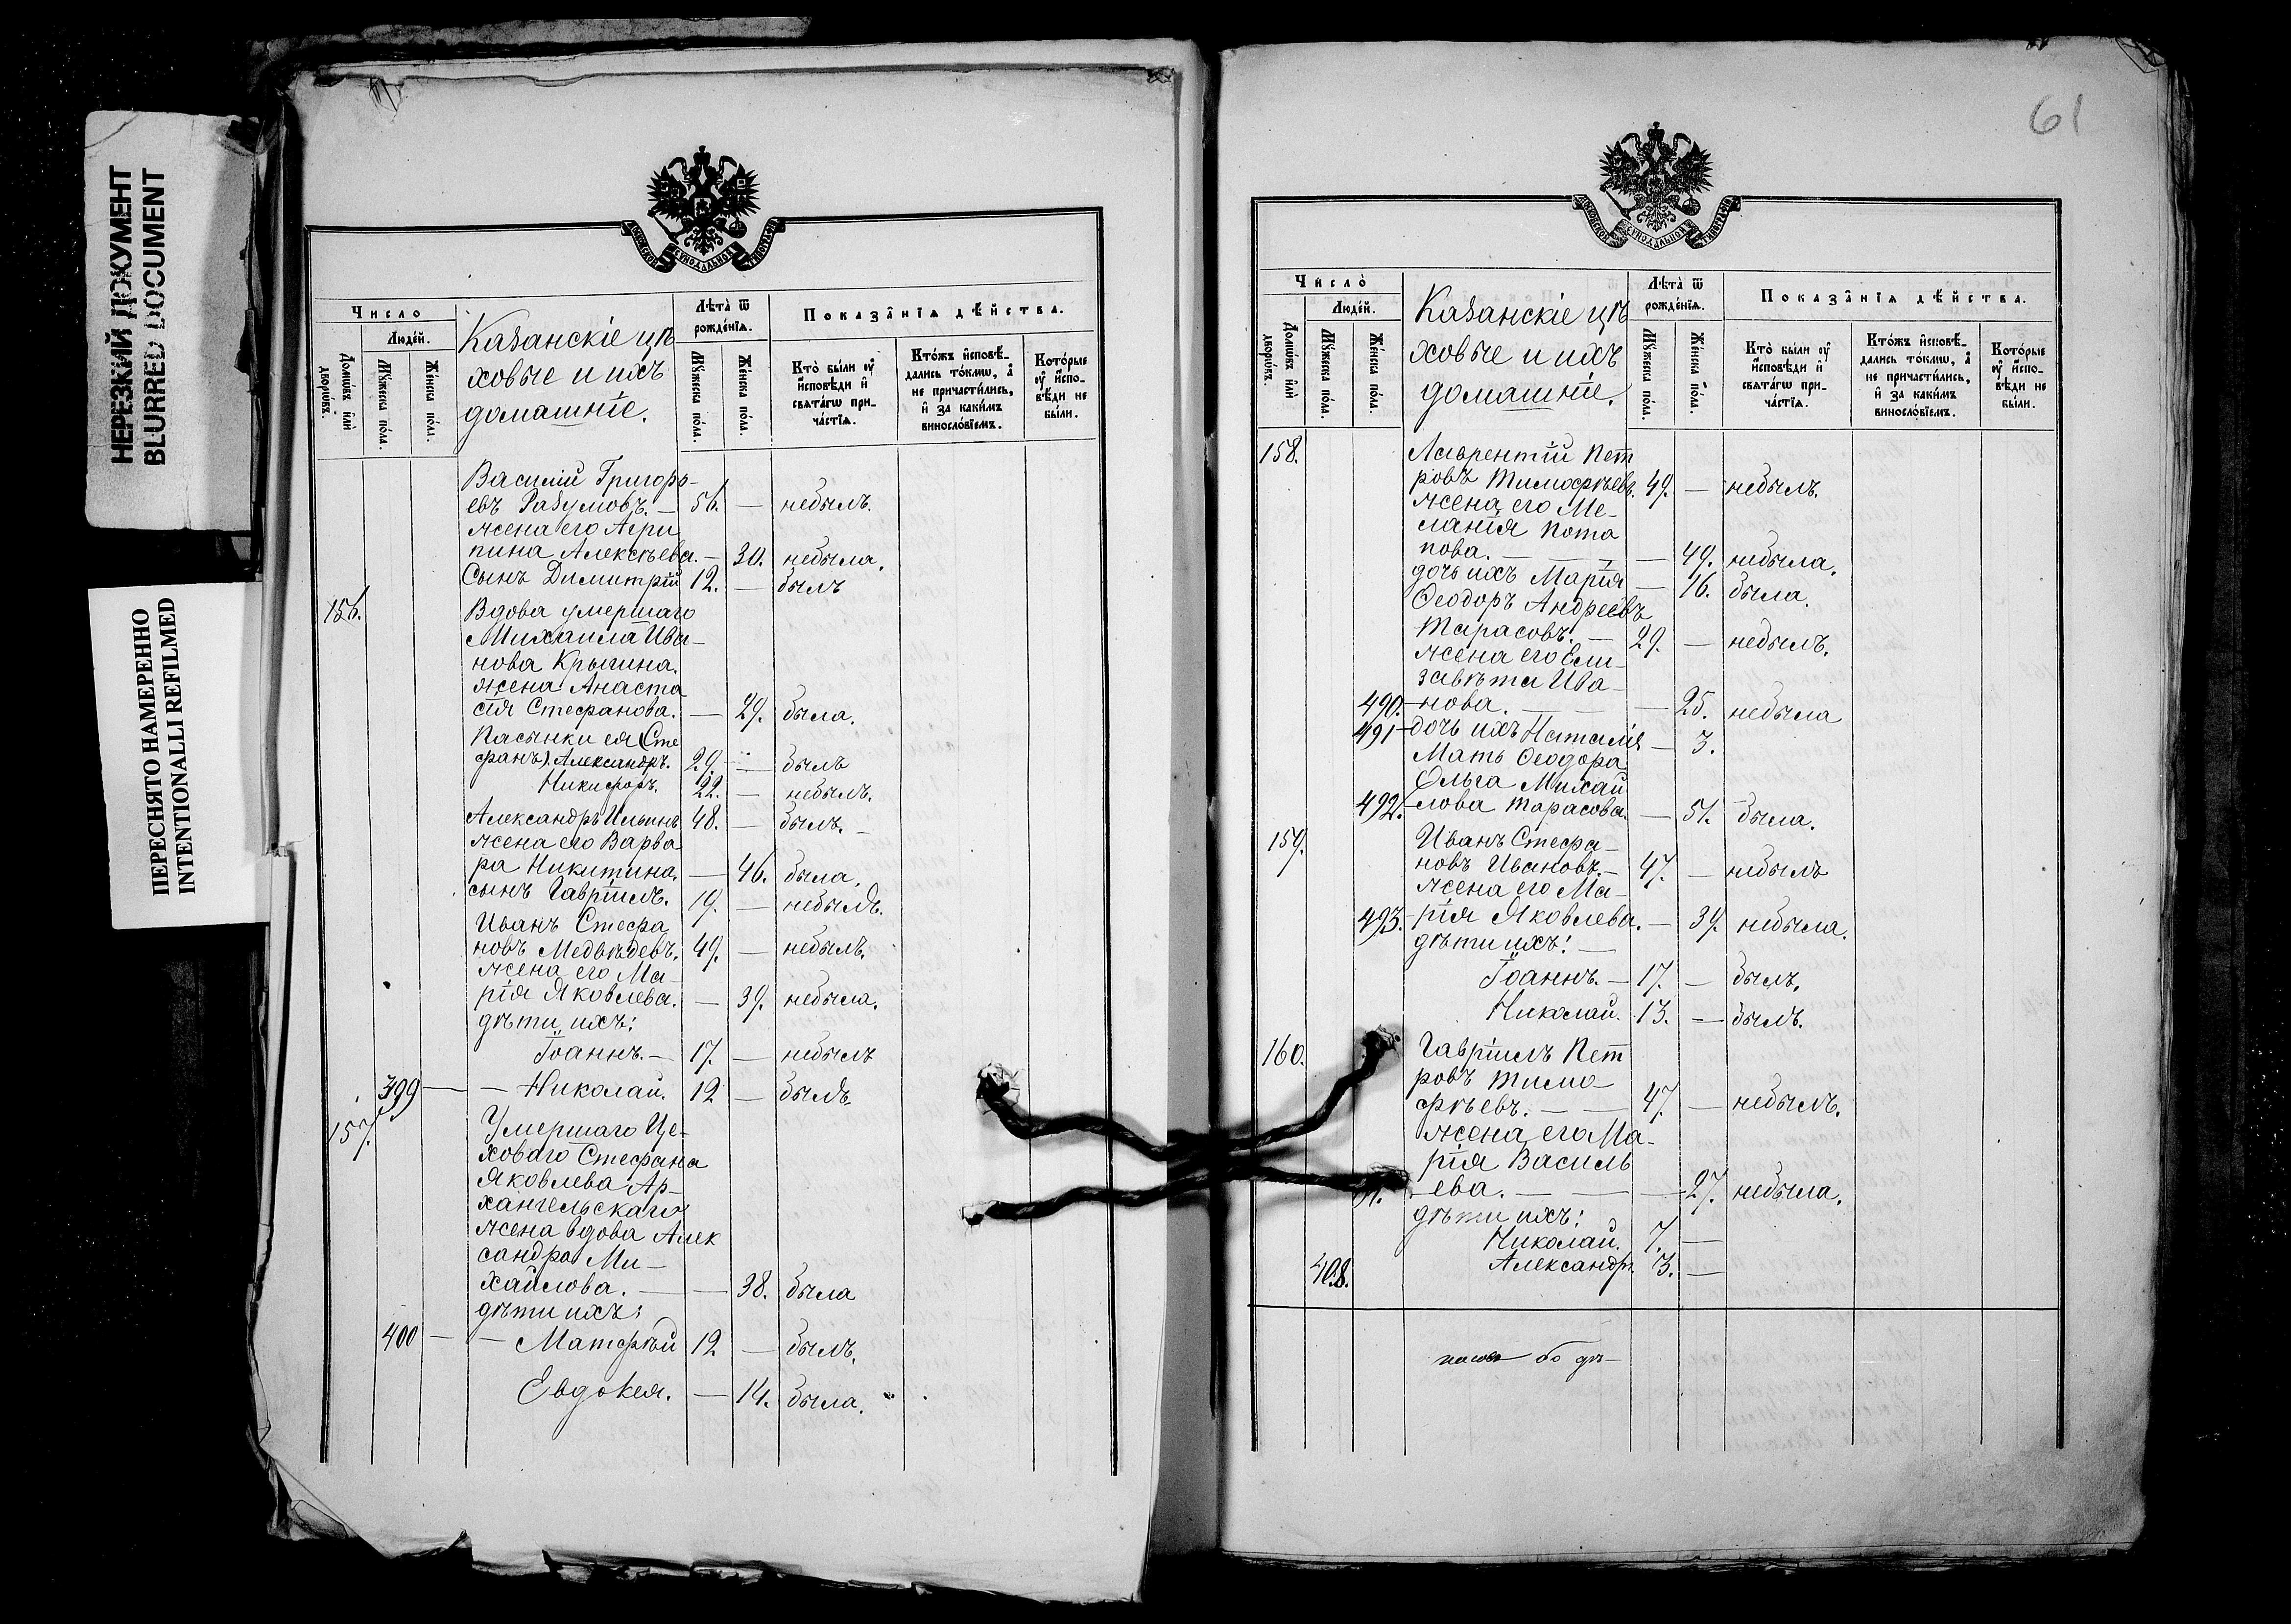 НЕРЕЗКИЙ ДОКУМЕНТ
BLURRED DOCUMENT
ПЕРЕСНЯТО НАМЕРЕННО
INTENTIONALLI REFILMED
МОСКОВСКОЙ СѴНОДАЛЬНОЙ ТИПОГРАФІИ
Число
Людей.
Домѡвъ или дворѡвъ.
Мꙋжеска пола.
Женска пола.
Казанскіе цѣ
ховые и ихъ
домашніе.
Лѣта ѿ рожденїѧ.
Мꙋжеска пола.
Женска пола.
Показанїѧ дѣйства.
Кто были оу исповѣди и свѧтагѡ причастїѧ.
Ктожъ исповѣдались токмѡ, а не причастились, и за какимъ винословїемъ.
Которые оу исповѣди не были.
Василій Григорь-
евъ Разумовъ. — 56. — небылъ.
жена его Агри
пина Алексѣева. — 30. небыла.
Сынъ Димитрій 12. — былъ
156. Вдова умершаго
Михаила Ива-
нова Крыгина.
жена Анаста
сія Стефанова. — 29. была.
Пасынки ея (Сте
фанъ). Александръ. 29. — былъ
Никифоръ. 22. — небылъ.
Александръ Ильинъ 48. — былъ. —
жена его Варва
ра Никитина. — 46. была.
сынъ Гавріилъ. 19. — небылъ.
Иванъ Стефа
новъ Медвѣдевъ. 49. — небылъ.
жена его Ма-
рія Яковлева. — 39. небыла.
дѣти ихъ:
Іоаннъ. — 17. — небылъ
399 — — Николай. 12 — былъ.
157. Умершаго Це-
ховаго Стефана
Яковлева Ар-
хангельскаго
жена вдова Алек
сандра Ми-
хайлова. — — 38. была
дѣти ихъ:
400 — — Матфѣй 12 — былъ.
Евдокея. — 14. была.
61
МОСКОВСКОЙ СѴНОДАЛЬНОЙ ТИПОГРАФІИ
Число
Людей.
Домѡвъ или дворѡвъ.
Мꙋжеска пола.
Женска пола.
Казанскіе цѣ
ховые и ихъ
домашніе.
Лѣта ѿ рожденїѧ.
Мꙋжеска пола.
Женска пола.
Показанїѧ дѣйства.
Кто были оу исповѣди и свѧтагѡ причастїѧ.
Ктожъ исповѣдались токмѡ, а не причастились, и за какимъ винословїемъ.
Которые оу исповѣди не были.
158. Лаврентій Пет
ровъ Тимофѣевъ. 49. — небылъ.
жена его Ме-
ланія Пота
пова. — — — 49. небыла.
дочь ихъ Марія — 16. была.
Ѳеодоръ Андреевъ
Тарасовъ. — 29. — небылъ.
жена его Ели-
завѣта Ива-
490. — нова. — — 25. небыла
491 — дочь ихъ Наталія — 3.
Мать Ѳеодора
Ольга Михай
492. — лова Тарасова. — 51. была.
159. Иванъ Стефа-
новъ Ивановъ. — 47. — небылъ
жена его Ма-
493. — рія Яковлева. — 39. небыла.
дѣти ихъ: —
Іоаннъ. — 17. — былъ.
Николай. 13. — былъ.
160. Гавріилъ Пет
ровъ Тимо-
фѣевъ. — — 47. — небылъ.
жена его Ма-
рія Василь
— ева. — — — 27. небыла.
дѣти ихъ:
Николай. 7. —
408. Александръ. 3. —